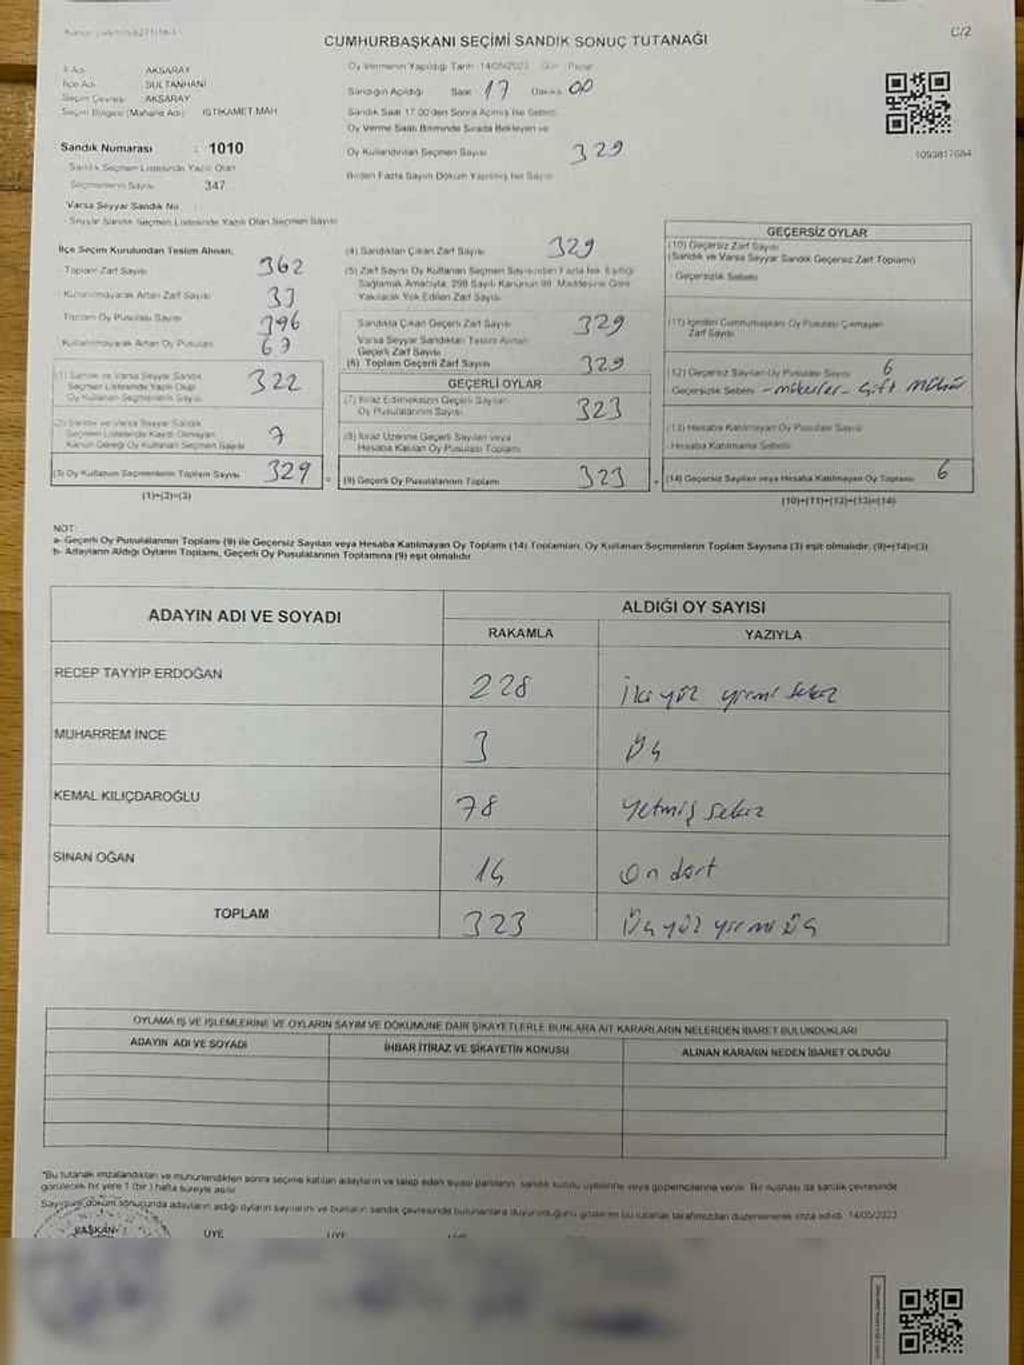 C/2
CUMHURBAŞKANI SEÇİMİ SANDIK SONUÇ TUTANAĞI
İl Adı AKSARAY
İlçe Adı SULTANHANI
Seçim Çevresi AKSARAY
Seçim Bölgesi (Mahalle Adı) İSTİKAMET MAH
Sandık Numarası : 1010
Sandık Seçmen Listesinde Yazılı Olan
Seçmenlerin Sayısı 347
Varsa Seyyar Sandık No
Seyyar Sandık Seçmen Listesinde Yazılı Olan Seçmen Sayısı
Oy Vermenin Yapıldığı Tarih 14/05/2023 Gün Pazar
Sandığın Açıldığı Saat 17 Dakika 00
Sandık Saat 17.00'den Sonra Açılmış İse Sebebi
Oy Verme Saati Bitiminde Sırada Bekleyen ve
Oy Kullandırılan Seçmen Sayısı 329
Birden Fazla Sayım Döküm Yapılmış İse Sayısı
1093817684
İlçe Seçim Kurulundan Teslim Alınan;
Toplam Zarf Sayısı 362
Kullanılmayarak Artan Zarf Sayısı 33
Toplam Oy Pusulası Sayısı 396
Kullanılmayarak Artan Oy Pusulası 67
(1) Sandık ve Varsa Seyyar Sandık
Seçmen Listesinde Yazılı Olup
Oy Kullanan Seçmenlerin Sayısı 322
(2) Sandık ve Varsa Seyyar Sandık
Seçmen Listesinde Kayıtlı Olmayan
Kanun Gereği Oy Kullanan Seçmen Sayısı 7
(3) Oy Kullanan Seçmenlerin Toplam Sayısı 329
(1)+(2)=(3)
(4) Sandıktan Çıkan Zarf Sayısı 329
(5) Zarf Sayısı Oy Kullanan Seçmen Sayısından Fazla İse, Eşitliği
Sağlamak Amacıyla, 298 Sayılı Kanunun 98. Maddesine Göre
Yakılarak Yok Edilen Zarf Sayısı
Sandıkta Çıkan Geçerli Zarf Sayısı 329
Varsa Seyyar Sandıktan Teslim Alınan
Geçerli Zarf Sayısı
(6) Toplam Geçerli Zarf Sayısı 329
GEÇERLİ OYLAR
(7) İtiraz Edilmeksizin Geçerli Sayılan
Oy Pusulalarının Sayısı 323
(8) İtiraz Üzerine Geçerli Sayılan veya
Hesaba Katılan Oy Pusulası Toplamı
(9) Geçerli Oy Pusulalarının Toplamı 323
GEÇERSİZ OYLAR
(10) Geçersiz Zarf Sayısı
(Sandık ve Varsa Seyyar Sandık Geçersiz Zarf Toplamı)
Geçersizlik Sebebi
(11) İçinden Cumhurbaşkanı Oy Pusulası Çıkmayan
Zarf Sayısı
(12) Geçersiz Sayılan Oy Pusulası Sayısı 6
Geçersizlik Sebebi - mükerler - Çift mühür
(13) Hesaba Katılmayan Oy Pusulası Sayısı
Hesaba Katılmama Sebebi
(14) Geçersiz Sayılan veya Hesaba Katılmayan Oy Toplamı 6
(10)+(11)+(12)+(13)=(14)
NOT:
a- Geçerli Oy Pusulalarının Toplamı (9) ile Geçersiz Sayılan veya Hesaba Katılmayan Oy Toplamı (14) Toplamları, Oy Kullanan Seçmenlerin Toplam Sayısına (3) eşit olmalıdır. (9)+(14)=(3)
b- Adayların Aldığı Oyların Toplamı, Geçerli Oy Pusulalarının Toplamına (9) eşit olmalıdır.
ADAYIN ADI VE SOYADI ALDIĞI OY SAYISI
RAKAMLA YAZIYLA
RECEP TAYYİP ERDOĞAN 228 İki yüz yirmi sekiz
MUHARREM İNCE 3 Üç
KEMAL KILIÇDAROĞLU 78 Yetmiş sekiz
SİNAN OĞAN 14 On dört
TOPLAM 323 Üç yüz yirmi üç
OYLAMA İŞ VE İŞLEMLERİNE VE OYLARIN SAYIM VE DÖKÜMÜNE DAİR ŞİKAYETLERLE BUNLARA AİT KARARLARIN NELERDEN İBARET BULUNDUKLARI
ADAYIN ADI VE SOYADI İHBAR İTİRAZ VE ŞİKAYETİN KONUSU ALINAN KARARIN NEDEN İBARET OLDUĞU
*Bu tutanak imzalandıktan ve mühürlendikten sonra seçime katılan adayların ve talep eden siyasi partilerin sandık kurulu üyelerine veya gözlemcilerine verilir. Bir nüshası da sandık çevresinde
görülecek bir yere 1 (bir) hafta süreyle asılır.
Sayım ve döküm sonucunda adayların aldığı oyların sayılarını ve bunların sandık çevresinde bulunanlara duyurulduğunu gösteren bu tutanak tarafımızdan düzenlenerek imza edildi. 14/05/2023
BAŞKAN ÜYE ÜYE ÜYE